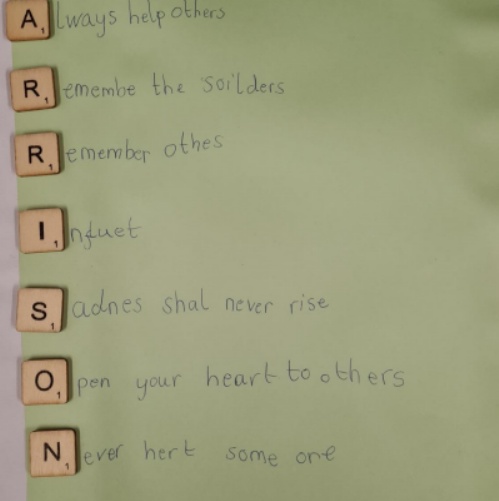 Always help others
Remembe the soilders
Remember othes
Influet
Sadnes shal never rise
Open your heart to others
Never hert some one